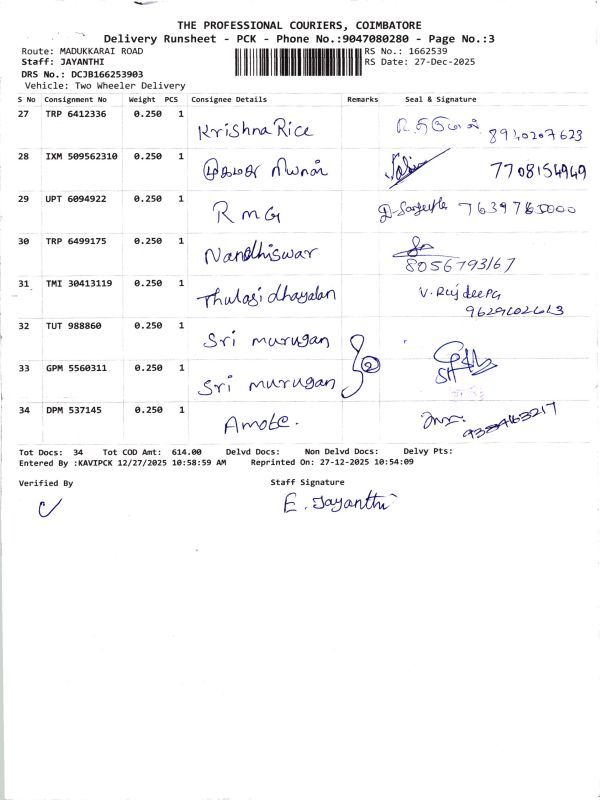 THE PROFESSIONAL COURIERS, COIMBATORE
Delivery Runsheet - PCK - Phone No.:9047080280 - Page No.:3
Route: MADUKKARAI ROAD RS No.: 1662539
Staff: JAYANTHI RS Date: 27-Dec-2025
DRS No.: DCJB166253903
Vehicle: Two Wheeler Delivery
S No Consignment No Weight PCS Consignee Details Remarks Seal & Signature
27 TRP 6412336 0.250 1 Krishna Rice 8940207623
28 IXM 509562310 0.250 1 7708154949
29 UPT 6094922 0.250 1 R m G
30 TRP 6499175 0.250 1 Nandhiswar
8056793167
31 TMI 30413119 0.250 1 Thulasi dhayalan V. Rajdeepa
32 TUT 988860 0.250 1 Sri murugan
2
33 GPM 5560311 0.250 1 Sri murugan
34 DPM 537145 0.250 1
Tot Docs: 34 Tot COD Amt: 614.00 Delvd Docs: Non Delvd Docs: Delvy Pts:
Entered By :KAVIPCK 12/27/2025 10:58:59 AM Reprinted On: 27-12-2025 10:54:09
Verified By Staff Signature
E. Jayanthi